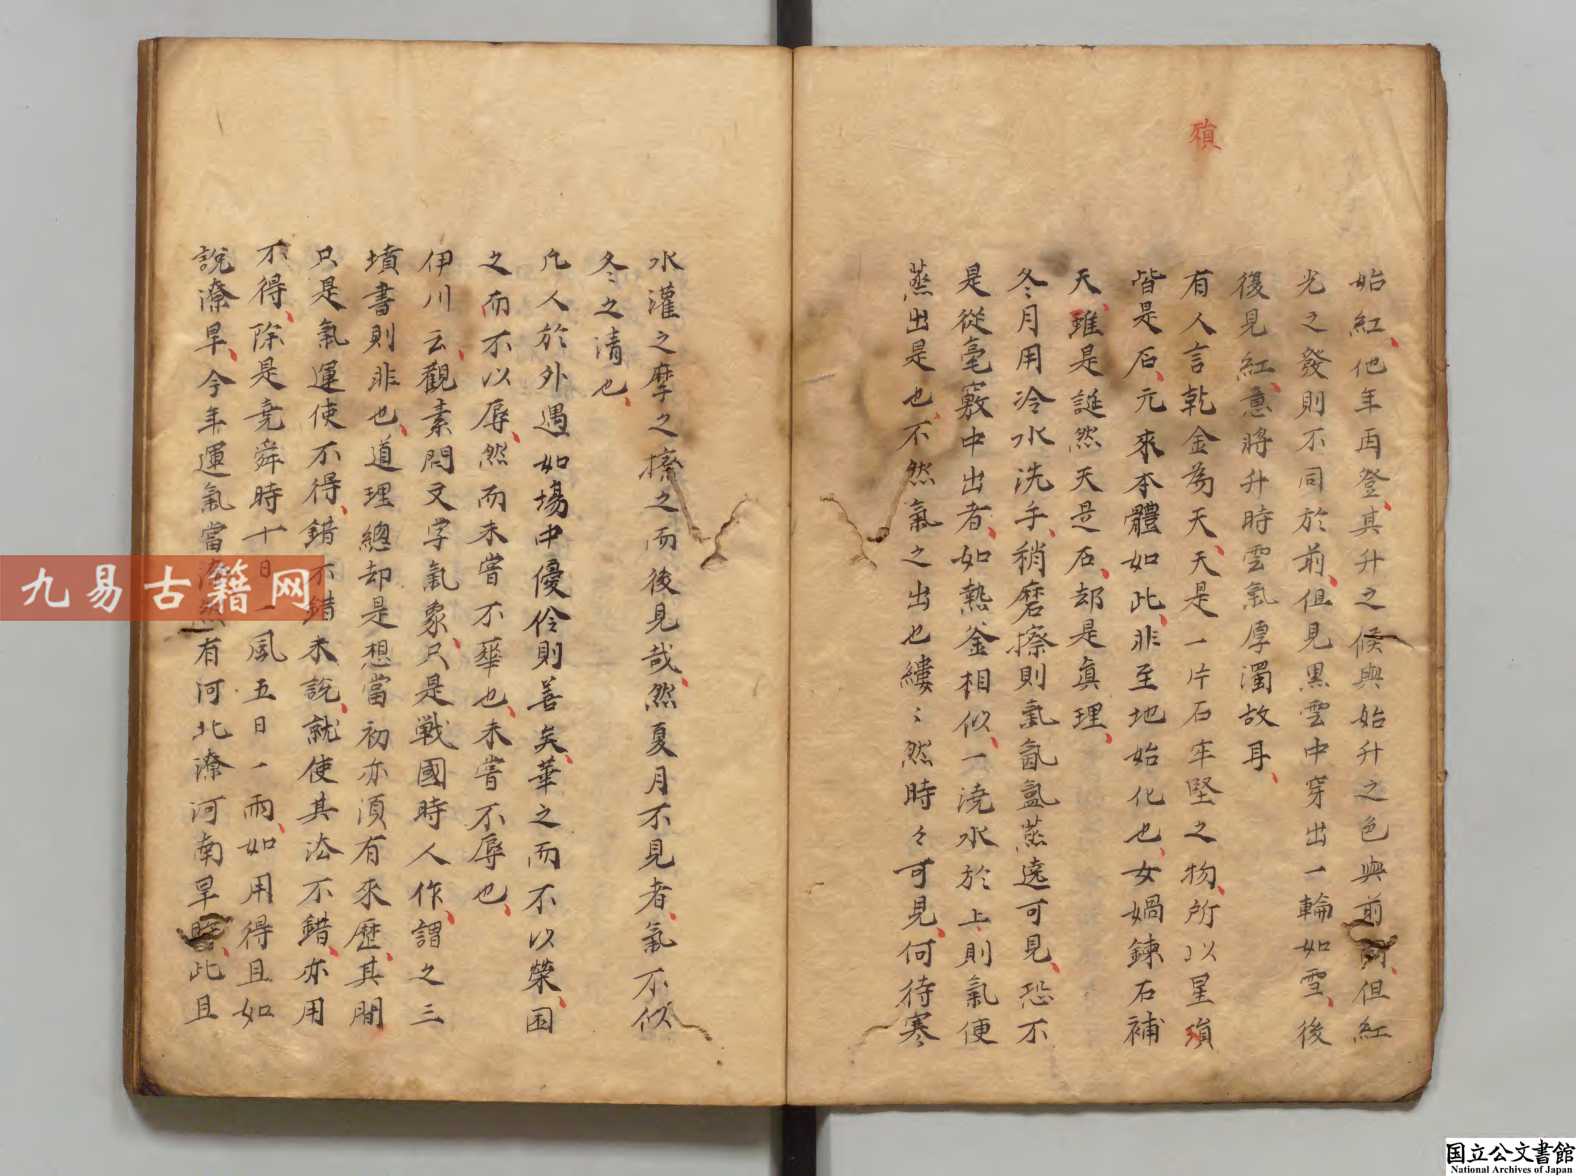 始紅他年再登其升之候與始升之色與前同但紅
光之發則不同於前但見黑雲中穿出一輪如雪後
復見紅意將升時雲氣厚濁故耳
有人言乾金為天天是一片石牢堅之物所以星瑣
殞
皆是石元來本體如此非至地始化也女媧鍊石補
天雖是誕然天是石却是真理
冬月用冷水洗手稍磨擦則氣氤氳蒸遶可見恐不
是從毫竅中出者如熱釜相似一澆水於上則氣便
蒸出是也不然氣之出也縷〻然時々可見何待寒
水灌之摩之擦之而後見哉然夏月不見者氣不似
冬之清也
凡人於外遇如場中優伶則善矣華之而不以榮困
之而不以辱然而未嘗不華也未嘗不辱也
伊川云觀素問文字氣象只是戰國時人作謂之三
墳書則非也道理總却是想當初亦須有來歷其間
只是氣運使不得錯不錯未說就使其法不錯亦用
不得除是堯舜時十日一風五日一雨如用得且如
說潦旱今年運氣當潦然有河北潦河南旱時此且
九易古籍网
国立公文書館
National Archives of Japan